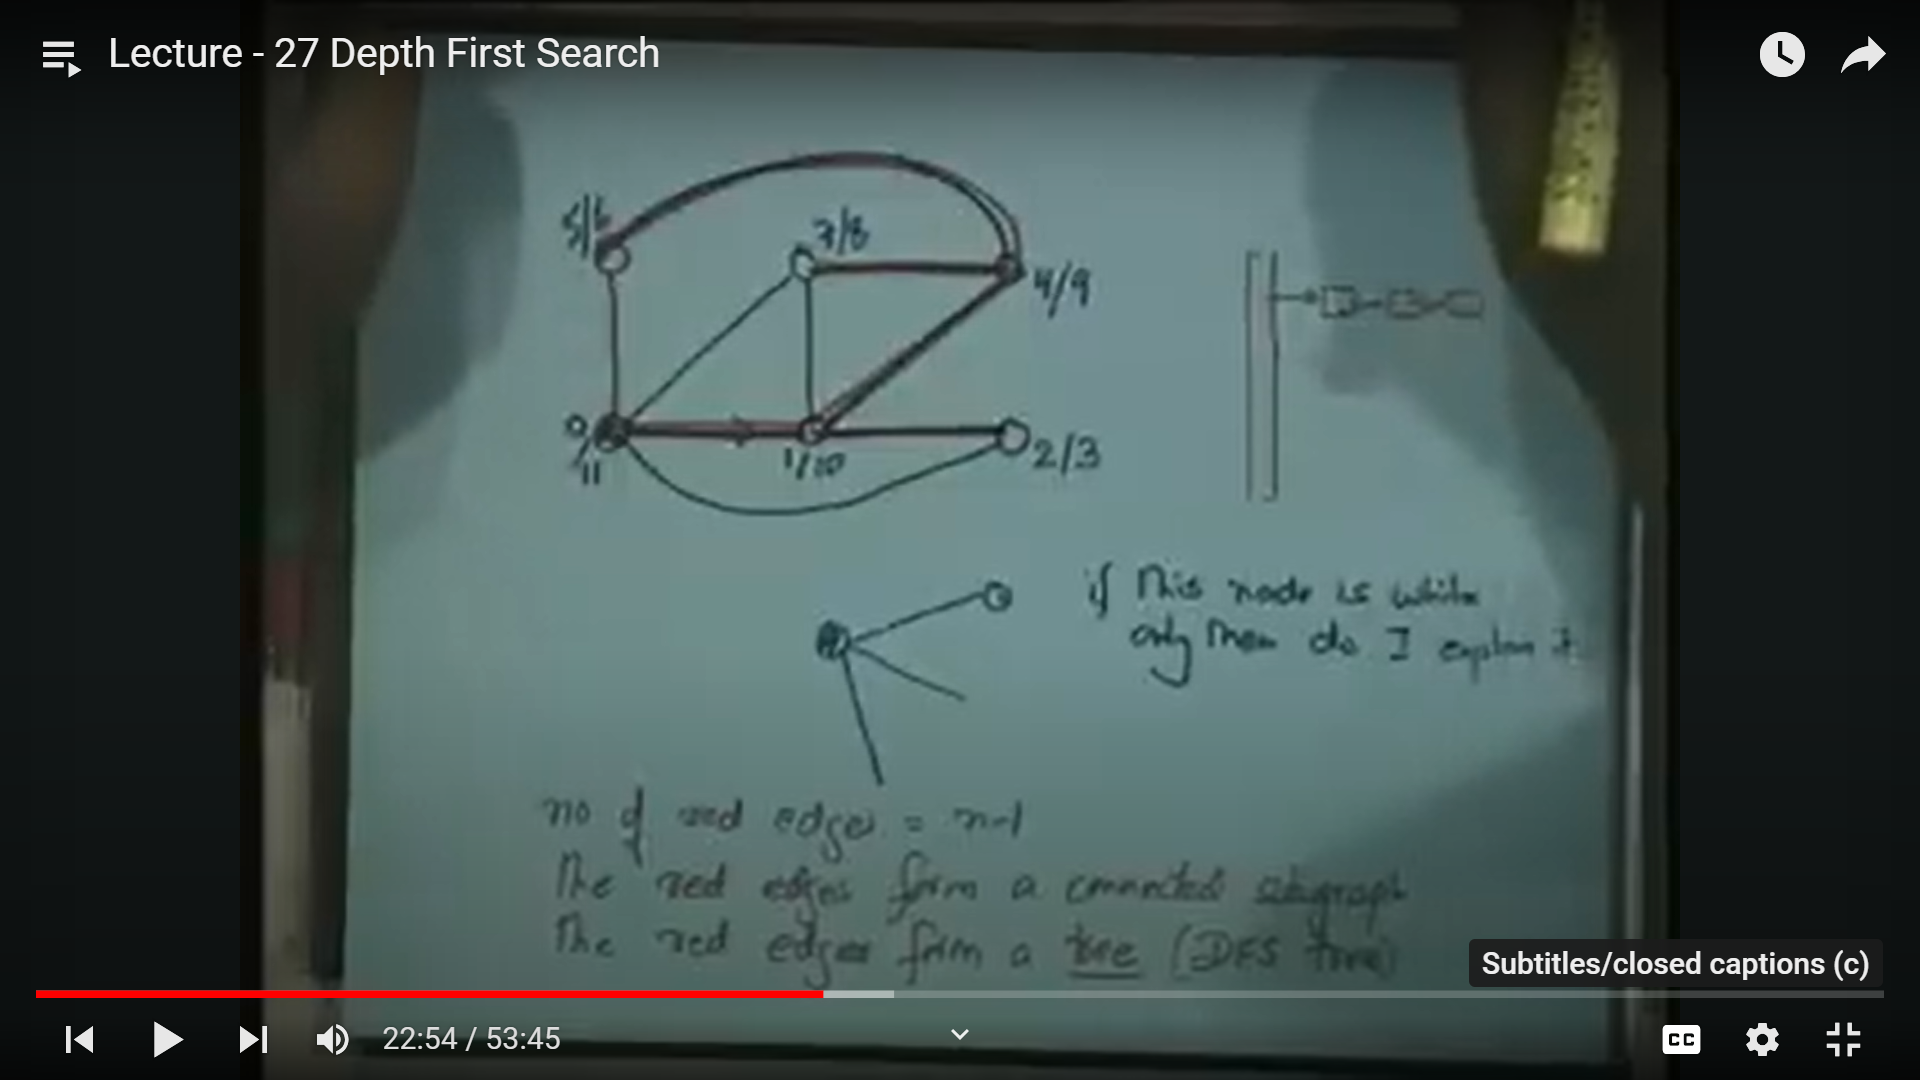 Lecture - 27 Depth First Search
5/6
7/8
4/9
0/11
1/10
2/3
if this node is white
only then do I explore it
no of red edges = n-1
The red edges form a connected subgraph
The red edges form a tree (DFS tree)
Subtitles/closed captions (c)
22:54 / 53:45
CC